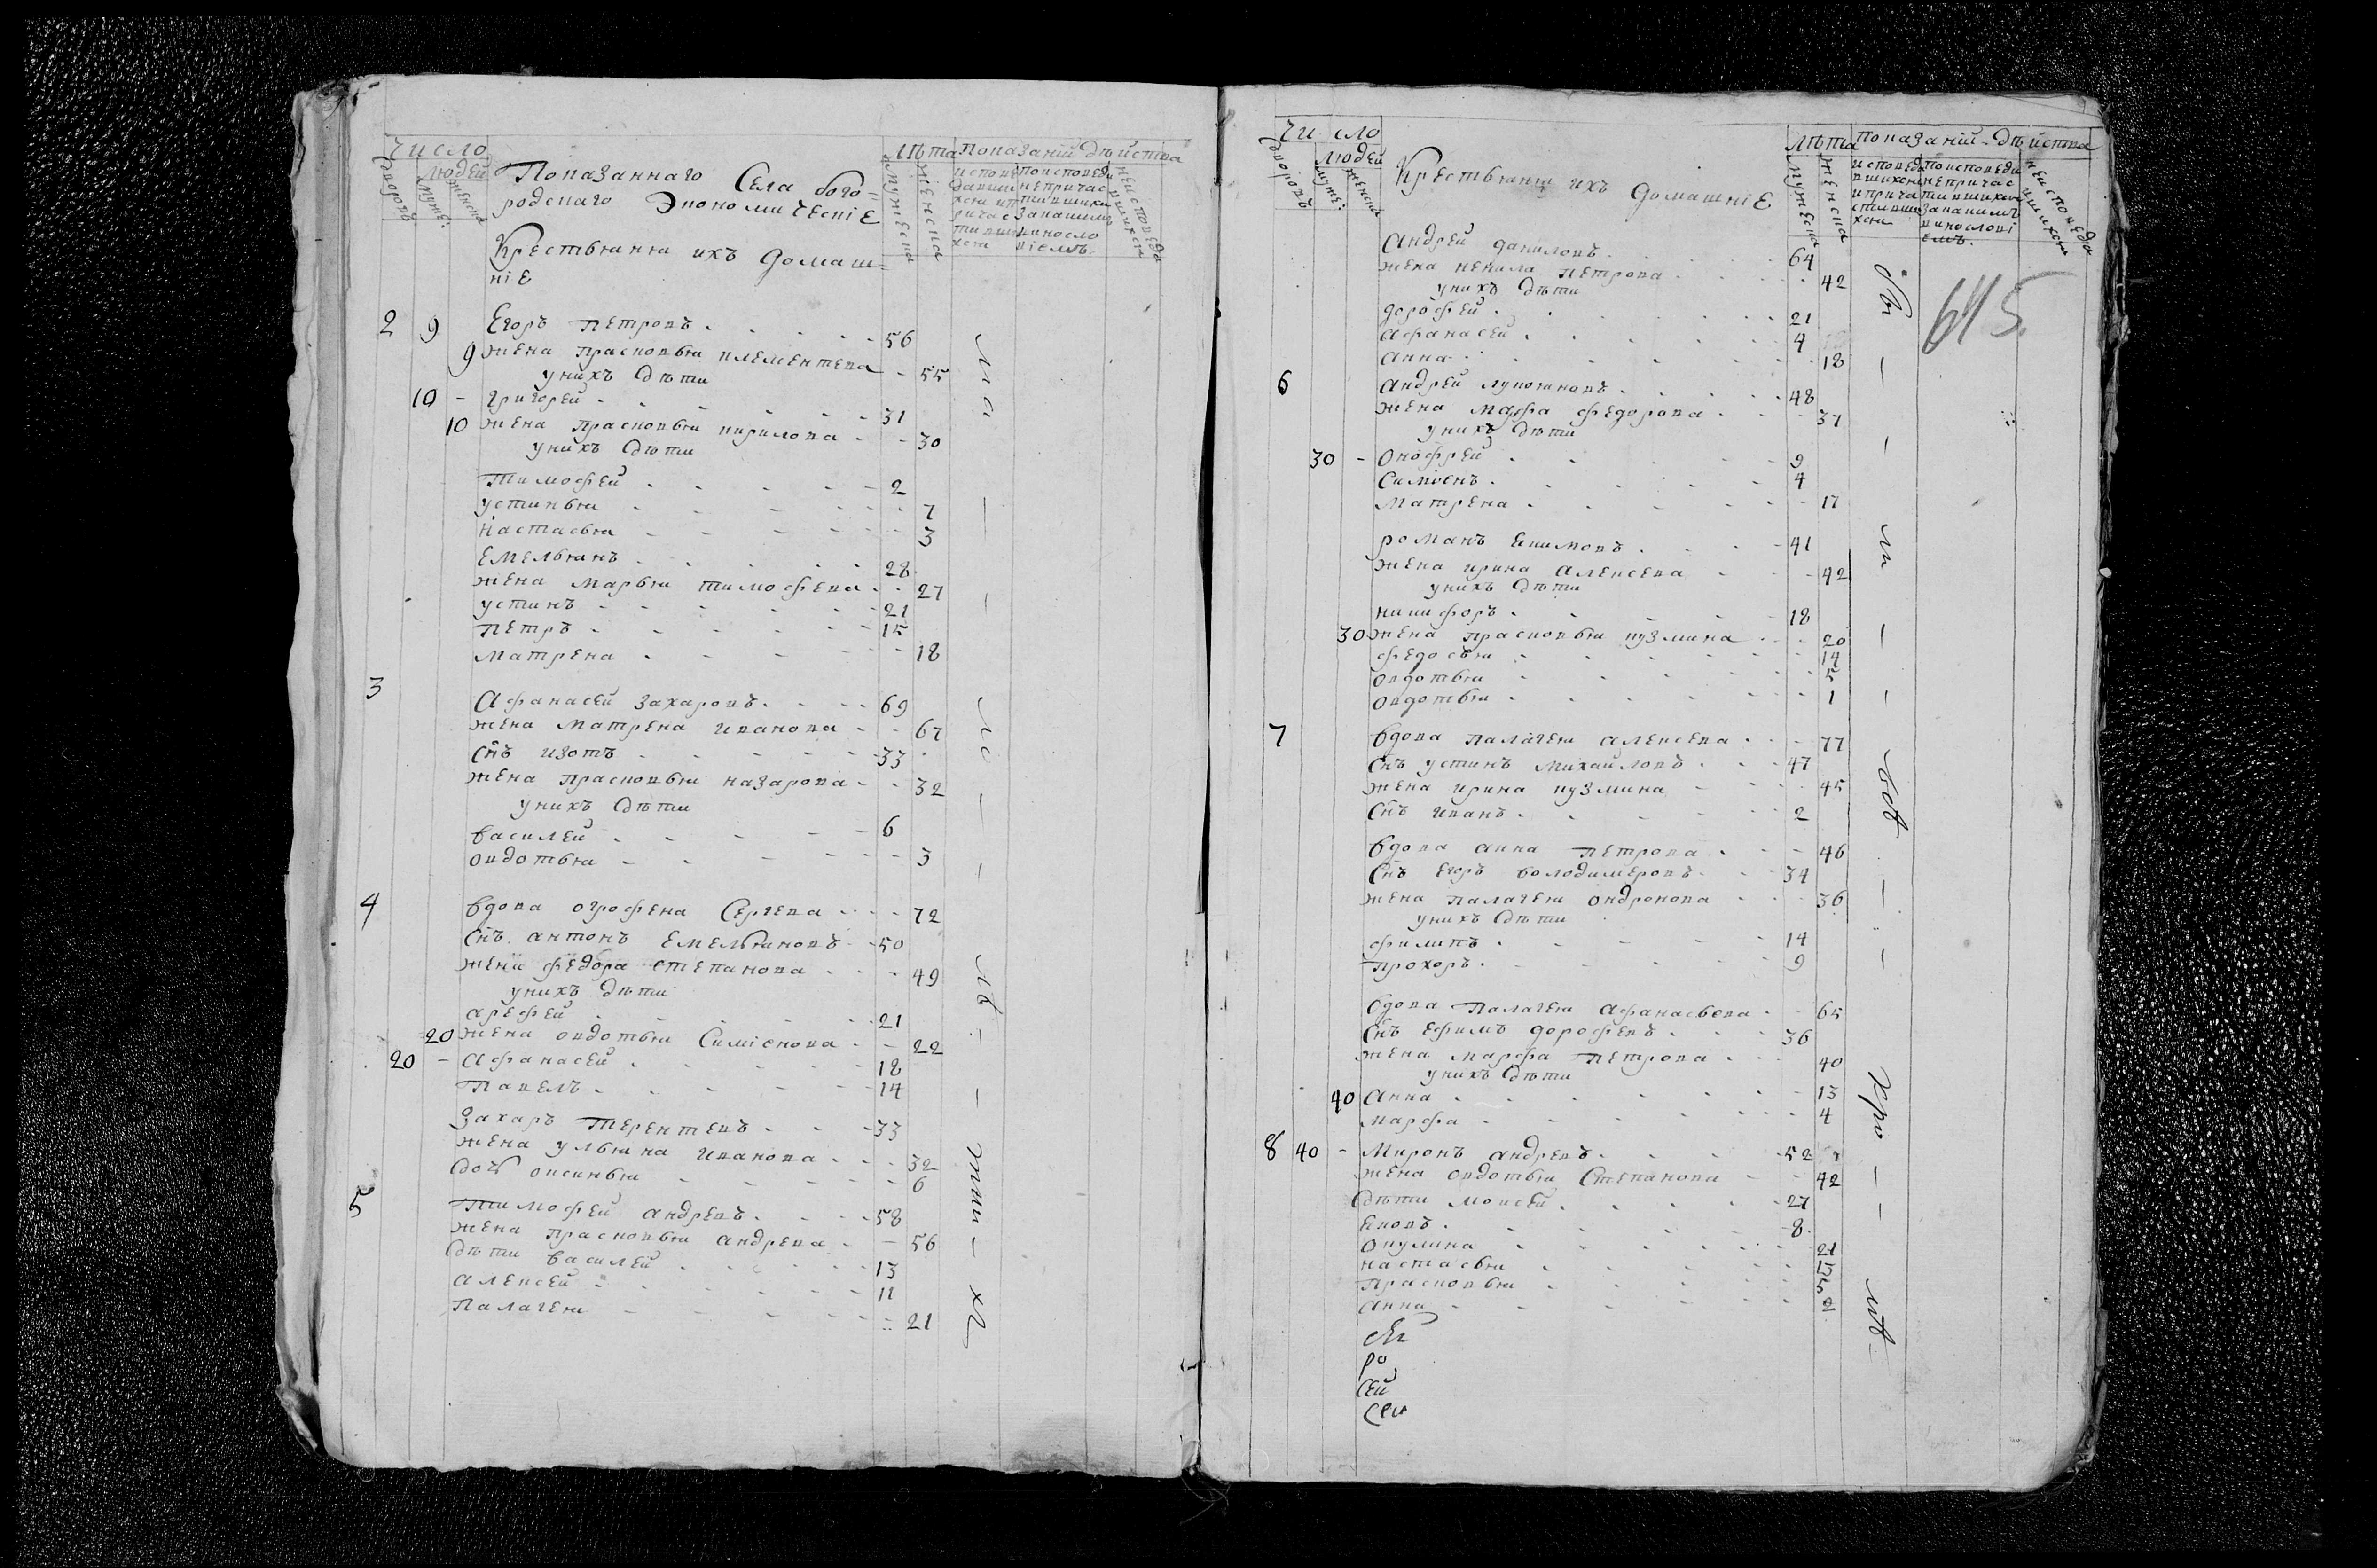 Число
людей
дворовъ
муже:
женска
Показанного Села бого=
родскаго Экономическіе
Крестьяня ихъ домаш=
ніе
лѣта
мужеска
женска
Показаніи дѣйства
исповѣ
давши
хся и п
ричас
тивши
хся
поисповѣди
непричас
тившихся
закакимъ
виносло
віемъ
неисповѣда
вшихся
2 9 Егоръ Петровъ 56
9 жена прасковья клементева 55
унихъ дѣти
10 григорей 31
10 жена прасковья кирилова 30
уникъ дѣти
Тимофей 2
устинья 7
Настасья 3
Емельянъ 28
жена марья тимофева 27
устинъ 21
петръ 15
матрена 18
3
Афанасей захаровъ 69
жена матрена иванова 67
Снъ изотъ 33
жена прасковья назарова 32
унихъ дѣти
василей 6
овдотья 3
4 вдова огрофена Сергева 72
Снъ антонъ Емельяновъ 50
жена федора степанова 49
унихъ дѣти
арефей 21
20 жена овдотья Симіонова 22
20 Афанасей 18
Павелъ 14
Захаръ Терентевъ 33
жена ульяна иванова 32
дочь оксинья 6
5 Тимофей андревъ 58
жена прасковья андрева 56
дѣти василей 13
алексей 11
палагея 21
Число
людей
дворовъ
муже:
женска
Крестьяня ихъ домашніе
лѣта
мужеска
женска
показаніи дѣйства
исповѣда
вшихся
и прича
стивши
хся
поисповѣди
непричас
тившихся
закакимъ
винослові
емъ
неисповѣда
вшихся
645
Андрей даниловъ 64
жена ненила петрова 42
унихъ дѣти
дорофей 21
афанасей 4
анна 18
6 андрей лукояновъ 48
жена марфа федорова 37
унихъ дѣти
30 Онофрей 9
Симіонъ 4
матрена 17
романъ Екимовъ 41
жена ирина алексева 42
унихъ дѣти
никифоръ 18
30 жена прасковья кузмина 20
федосья 14
овдотья 5
овдотья 1
7 вдова палагея алексева 77
Снъ устинъ михайловъ 47
жена ирина кузмина 45
Снъ иванъ 2
вдова анна петрова 46
Снъ егоръ володимеровъ 34
жена палагея ондронова 36
унихъ дѣти
филипъ 14
прохоръ 9
вдова палагея афанасьева 65
Снъ ефимъ дорофевъ 36
жена марфа петрова 40
унихъ дѣти
40 анна 13
марфа 4
8 40 Миронъ андревъ 52
жена овдотья Степанова 42
дѣти моисей 27
яковъ 8
окулина 21
настасья 13
прасковья 5
анна 2
ро
сей